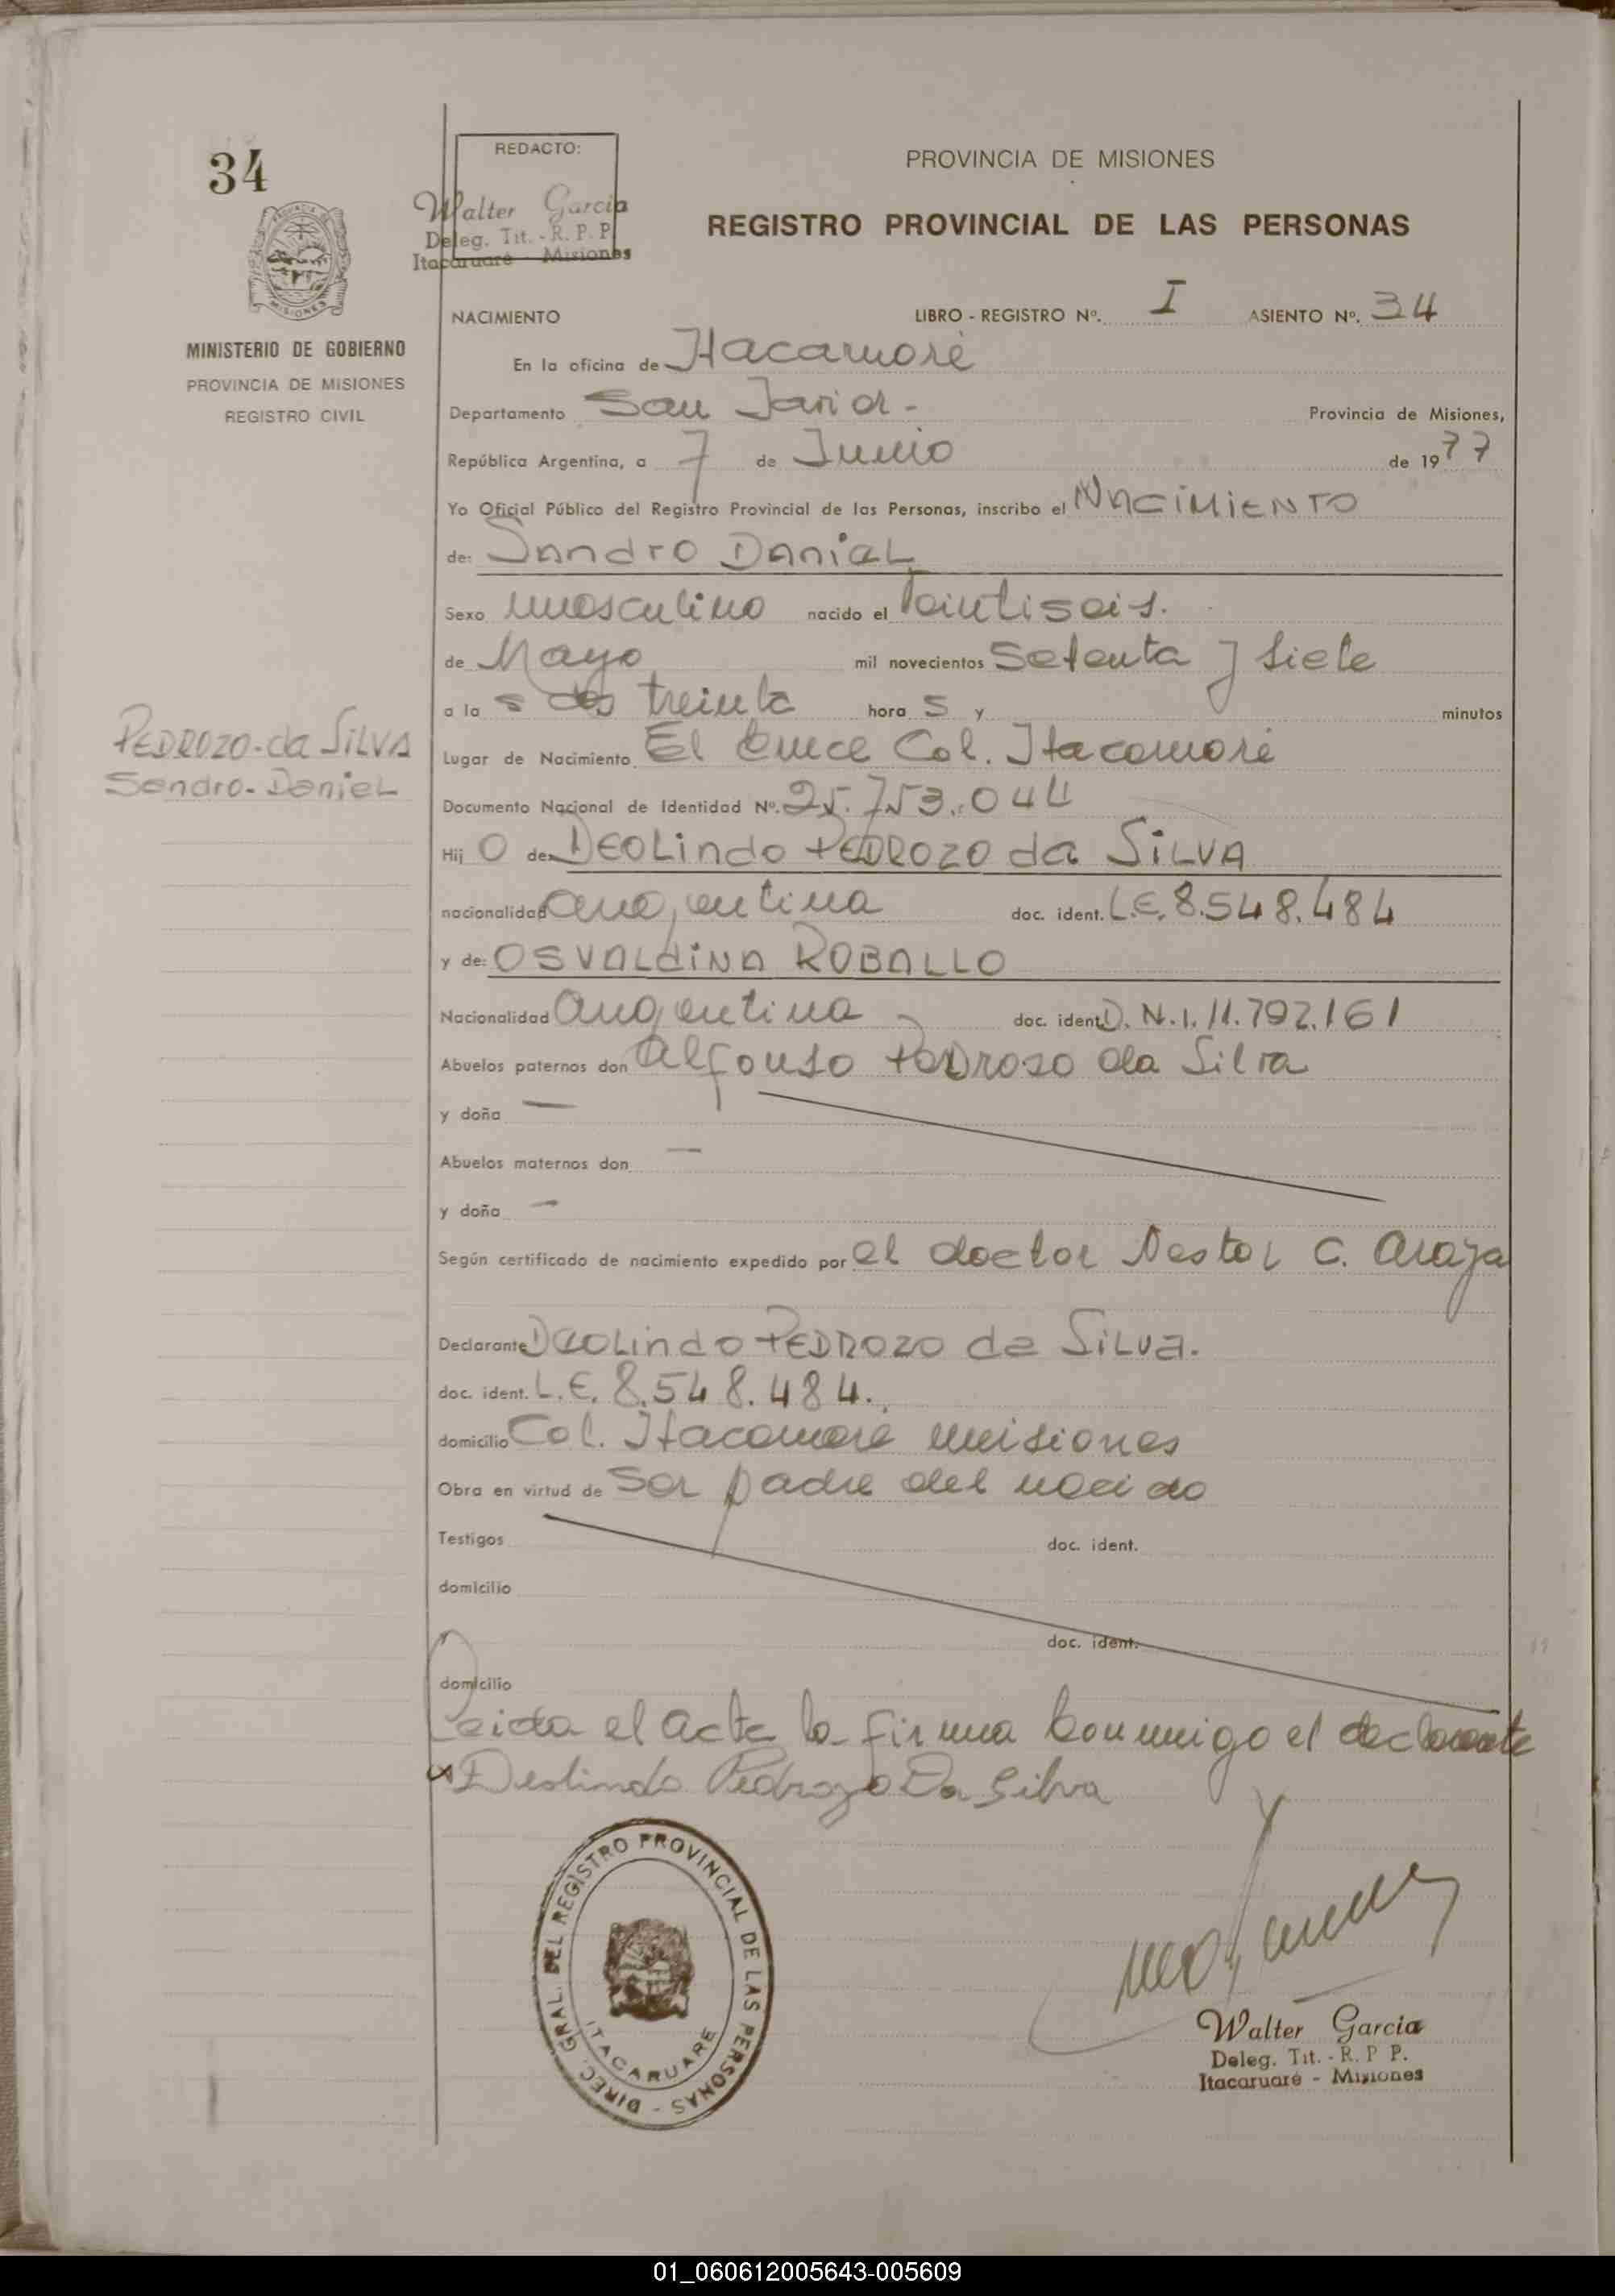 34
REDACTO:
Walter Garcia
Deleg. Tit. - R. P. P.
Itacaruaré - Misiones
PROVINCIA DE MISIONES
REGISTRO PROVINCIAL DE LAS PERSONAS
MINISTERIO DE GOBIERNO
PROVINCIA DE MISIONES
REGISTRO CIVIL
NACIMIENTO LIBRO - REGISTRO Nº. I ASIENTO Nº. 34
En la oficina de Itacaruaré
Departamento San Javier - Provincia de Misiones,
República Argentina, a 7 de Junio de 1977
Yo Oficial Público del Registro Provincial de las Personas, inscribo el NACIMIENTO
de: Sandro Daniel
Sexo masculino nacido el veintiseis.
de Mayo mil novecientos setenta y siete
a la s dos treinta hora s y minutos
PEDROZO-da SILVA
Sandro-Daniel
Lugar de Nacimiento El Cruce Col. Itacaruaré
Documento Nacional de Identidad Nº. 25.753.044
Hij O de DEOLindo PEDROZO da SILVA
nacionalidad argentina doc. ident. L.E. 8.548.484
y de: OSVALdiNA ROBALLO
Nacionalidad argentina doc. ident. D.N.I. 11.792.161
Abuelos paternos don Alfonso Pedrozo da Silva
y doña —
Abuelos maternos don —
y doña —
Según certificado de nacimiento expedido por el doctor Nestor C. Araya
Declarante DEOLindo PEDROZO da SILVA.
doc. ident. L.E. 8.548.484.
domicilio Col. Itacaruaré Misiones
Obra en virtud de ser padre del nacido
Testigos doc. ident.
domicilio
doc. ident.
domicilio
Leida el acta la firma conmigo el declarante
Deolindo Pedrozo Da Silva
DIREC. GRAL. DEL REGISTRO PROVINCIAL DE LAS PERSONAS -
ITACARUARE
Walter Garcia
Deleg. Tit. - R. P P.
Itacaruaré - Misiones
01_060612005643-005609